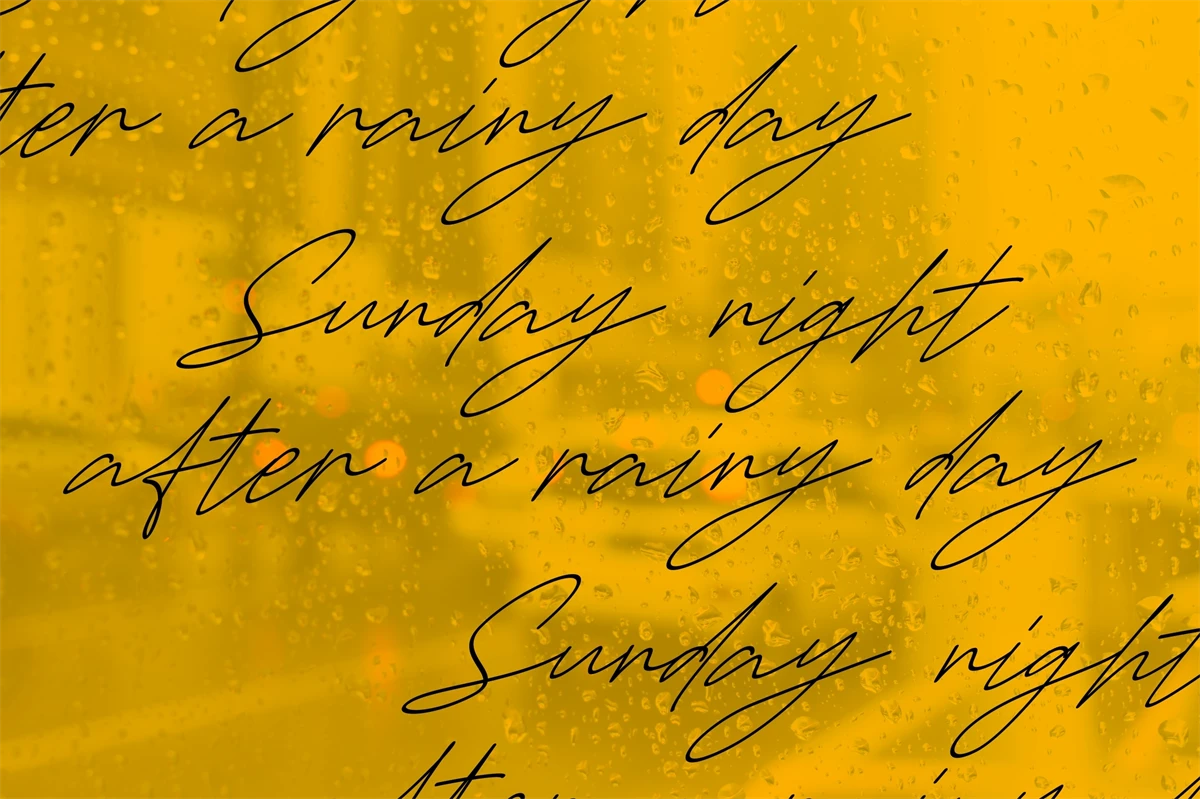 ter a rainy day
Sunday night
after a rainy day
Sunday night